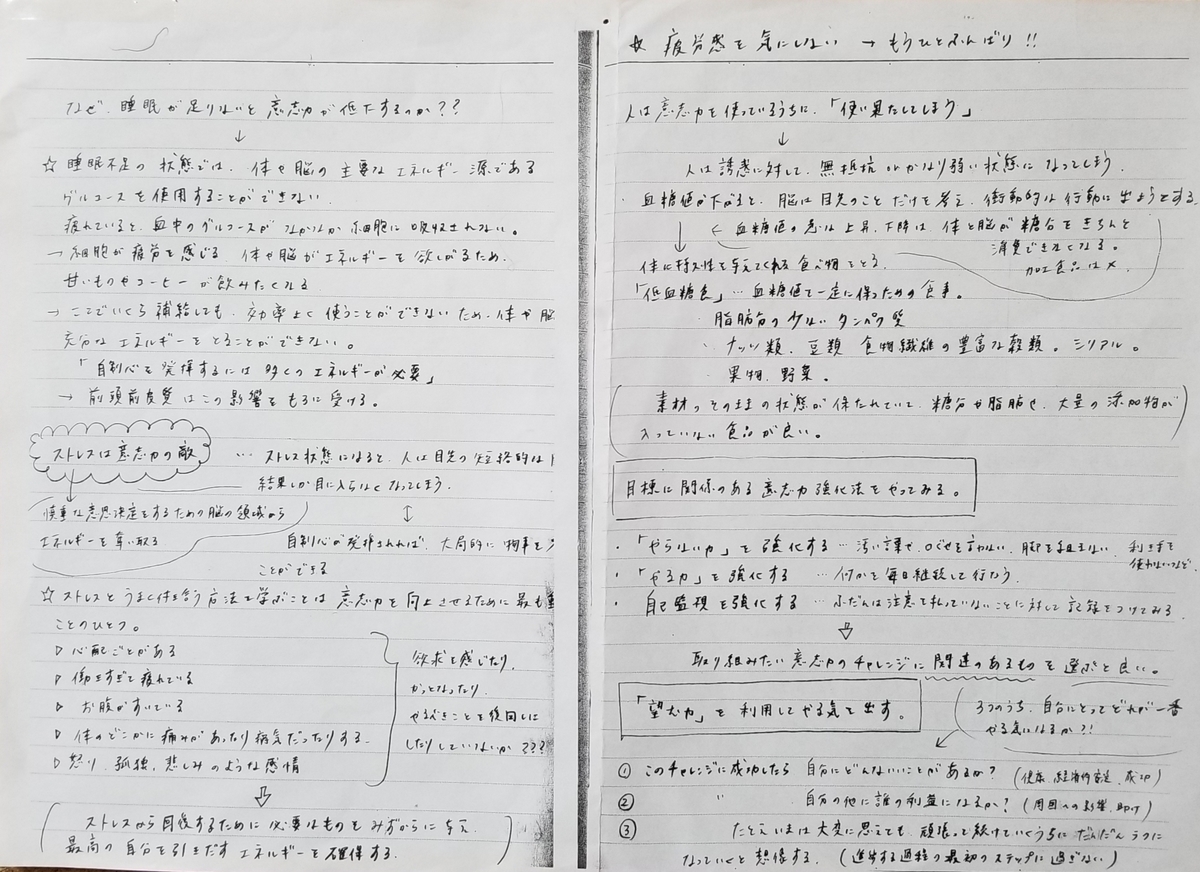 なぜ、睡眠が足りないと意志力が低下するのか??
↓
☆ 睡眠不足の状態では、体や脳の主要なエネルギー源である
グルコースを使用することができない.
疲れていると、血中のグルコースがなかなか細胞に吸収されない。
→ 細胞が疲労を感じる. 体や脳がエネルギーを欲しがるため.
甘いものやコーヒーが飲みたくなる
→ ここでいくら補給しても、効率よく使うことができないため、体や脳
充分なエネルギーをとることができない。
「自制心を発揮するには多くのエネルギーが必要」
→ 前頭前皮質はこの影響をもろに受ける。
ストレスは意志力の敵
… ストレス状態になると、人は目先の短絡的な
結果しか目に入らなくなってしまう.
↕
慎重な意思決定をするための脳の領域から
エネルギーを奪い取る
自制心が発揮されれば、大局的に物事を
ことができる
☆ ストレスとうまく付き合う方法を学ぶことは意志力を向上させるために最も重
ことのひとつ。
▷ 心配ごとがある
▷ 働きすぎて疲れている
▷ お腹がすいている
▷ 体のどこかに痛みがあったり病気だったりする
▷ 怒り、孤独、悲しみのような感情
欲求を感じたり、
かっとなったり
やるべきことを後回しに
したりしていないか???
⇩
(ストレスから回復するために必要なものをみずからに与え
最高の自分を引きだすエネルギーを確保する.)
☆ 疲労感を気にしない → もうひとふんばり!!
人は意志力を使っているうちに、「使い果たしてしまう」
↓
人は誘惑に対して、無抵抗 orかなり弱い状態になってしまう.
・ 血糖値が下がると、脳は目先のことだけを考え、衝動的な行動に出ようとする.
↓ ← 血糖値の急な上昇、下降は、体と脳が糖分をきちんと
消費できなくなる。
加工食品は×.
体に持久性を与えてくれる食べ物をとる.
「低血糖食」… 血糖値を一定に保つための食事。
・ 脂肪分の少ないタンパク質
・ ナッツ類、豆類 食物繊維の豊富な穀類。シリアル。
・ 果物、野菜。
(素材のそのままの状態が保たれていて、糖分や脂肪や、大量の添加物が
入っていない食品が良い。)
目標に関係のある意志力強化法をやってみる。
・ 「やらない力」を強化する … 汚い言葉や、口ぐせを言わない、脚を組まない、利き手を
使わないなど.
・ 「やる力」を強化する … 何かを毎日継続して行なう.
・ 自己監視を強化する … ふだんは注意を払っていないことに対して記録をつけてみる.
⇩
取り組みたい意志力のチャレンジに関連のあるものを選ぶと良い。
「望む力」を利用してやる気を出す。
3つのうち、自分にとってどれが一番
やる気になるか?!
① このチャレンジに成功したら 自分にどんないいことがあるか? (健康、経済的安定、成功)
② 〃 自分の他に誰の利益になるか? (周囲への影響、助け)
③ たとえいまは大変に思えても、頑張って続けていくうちにだんだんラクに
なっていくと想像する. (進歩する過程の最初のステップに過ぎない)